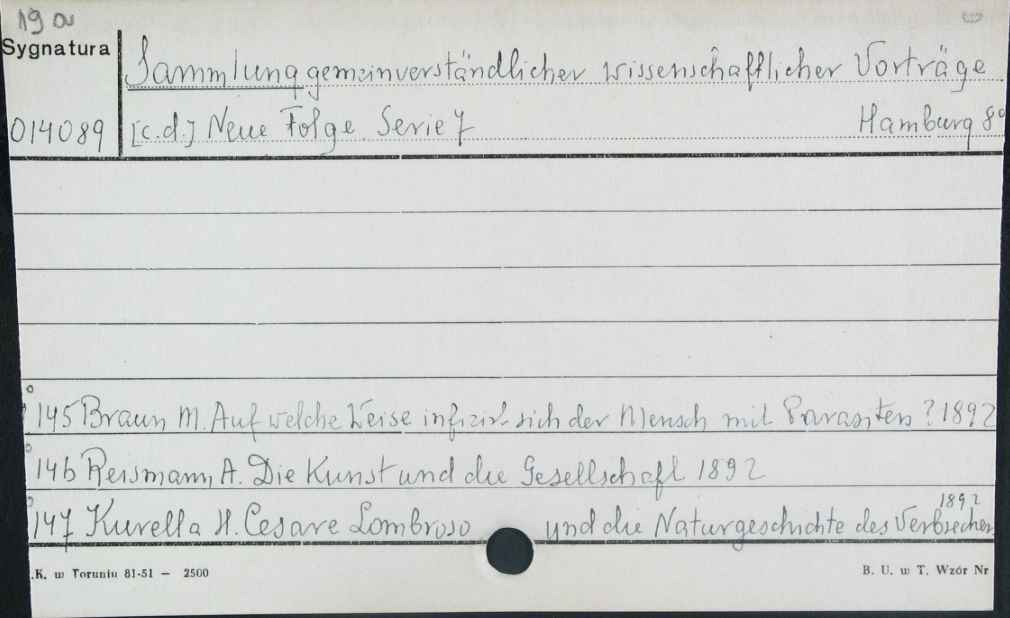 19 a
Sygnatura
Sammlung gemeinverständlicher wissenschaftlicher Vorträge
014089 [c.d.] Neue Folge Serie 7 Hamburg 8°
145 Braun M. Auf welche Weise infizirt sich der Mensch mit Parasiten? 1892
146 Reismann, A. Die Kunst und die Gesellschaft 1892
1892
147 Kurella H. Cesare Lombroso und die Naturgeschichte des Verbrechen
.K. w Toruniu 81-51 — 2500 B. U. w T. Wzór Nr